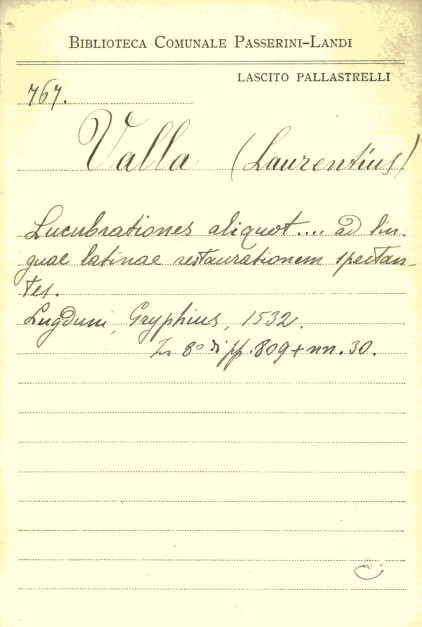 BIBLIOTECA COMUNALE PASSERINI-LANDI
LASCITO PALLASTRELLI
767.
Valla (Laurentius)
Lucubrationes aliquot.... ad lin-
guae latinae restaurationem spectan-
tes.
Lugduni, Gryphius, 1532.
In 8° di pp. 809 + nn. 30.